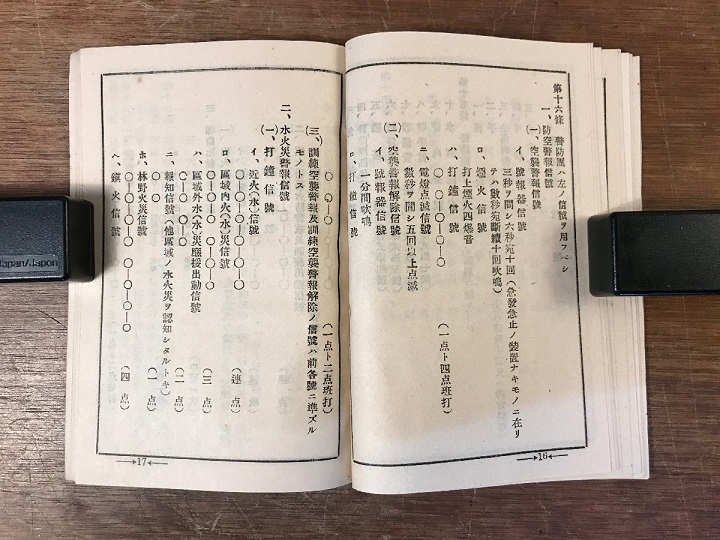 第十六條 警防團ハ左ノ信號ヲ用フベシ
一、防空警報信號
(一)、空襲警報信號
イ、號報器信號
三秒ヲ間シ六秒宛十回(急發急止ノ裝置ナキモノニ在リ
テハ數秒宛斷續十回吹鳴)
ロ、煙火信號
打上煙火四爆音
ハ、打鐘信號
○ ○—○—○—○ (一点ト四点班打)
ニ、電燈点滅信號
數秒ヲ間シ五回以上点滅
(二)、空襲警報解除信號
イ、號報器信號
一分間吹鳴
ロ、打鐘信號
—16—
○ ○—○ (一点ト二点班打)
(三)、訓練空襲警報及訓練空襲警報解除ノ信號ハ前各號ニ準ズル
モノトス
二、水火災警報信號
(一)、打鐘信號
イ、近火(水)信號
○—○—○—○—○—○ (連点)
ロ、區域内火(水)災信號
○—○—○ ○—○—○ (三点)
ハ、區域外水(火)災應援出動信號
○—○ ○—○ ○—○ (二点)
ニ、報知信號(他區域ノ水火災ヲ認知シタルトキ)
○ ○ ○ (一点)
ホ、林野火災信號
○—○—○—○ ○—○—○—○ (四点)
ヘ、鎭火信號
—17—
Japan